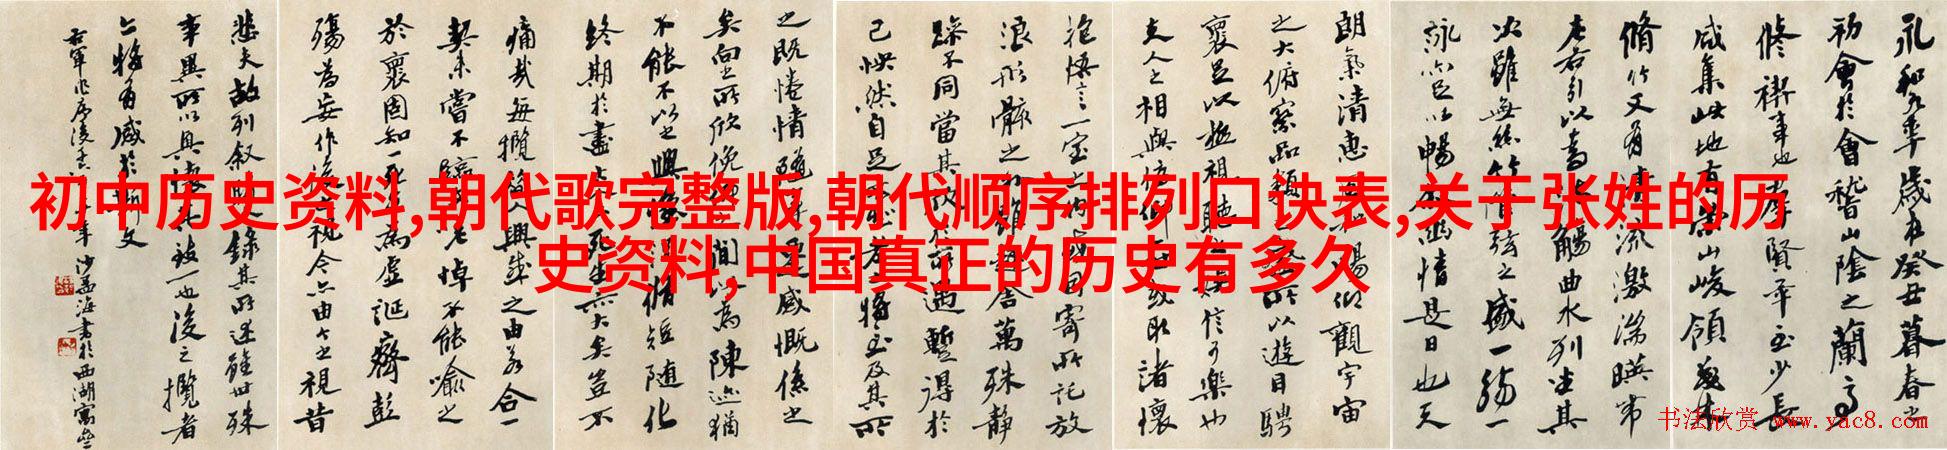 初中历史资料,朝代歌完整版,朝代顺序排列口诀表,关于张姓的历
史资料,中国真正的历史有多久
永和九年歲在癸丑暮春之
初會於會稽山陰之蘭亭
脩禊事也羣賢畢至少長
咸集此地有崇山峻領茂林
脩竹又有清流激湍暎帶
左右引以為流觴曲水列坐其
次雖無絲竹管弦之盛一觴一
詠亦足以暢敘幽情是日也天
朗氣清惠風和暢仰觀宇宙
之大俯察品類之盛所以遊目騁
懷足以極視聽之娛信可樂也
夫人之相與俯仰一世或取諸懷
抱悟言一室之內或因寄所託放
浪形骸之外雖趣舍萬殊靜
躁不同當其欣於所遇暫得於
己怏然自足不知老之將至及其所
之既惓情隨事遷感慨係之
矣向之所欣俛仰之間以為陳迹猶
不能不以之興懷況脩短隨化
終期於盡古人云死生亦大矣豈不
痛哉每攬昔人興感之由若合一
契未嘗不臨文嗟悼不能喻之
於懷固知一死生為虛誕齊彭
殤為妄作後之視今亦由今之視昔
悲夫故列敘時人錄其所述雖世殊
事異所以興懷其致一也後之攬者
亦將有感於斯文
右軍作序後 年 沙孟海書於西湖寓
书法欣赏 www.yac8.com